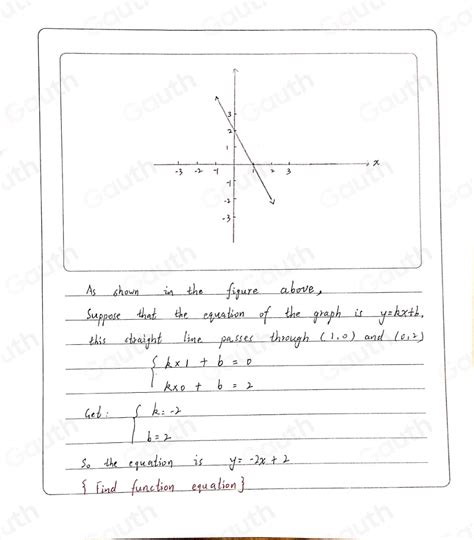 3
2
1
-3 -2 -1 1 2 3 x
-1
-2
-3
As shown in the figure above,
Suppose that the equation of the graph is y=kx+b,
this straight line passes through (1,0) and (0,2)
{ k×1 + b = 0
k×0 + b = 2
Get: { k=-2
b=2
So the equation is y= -2x+2
{ Find function equation }
Gauth